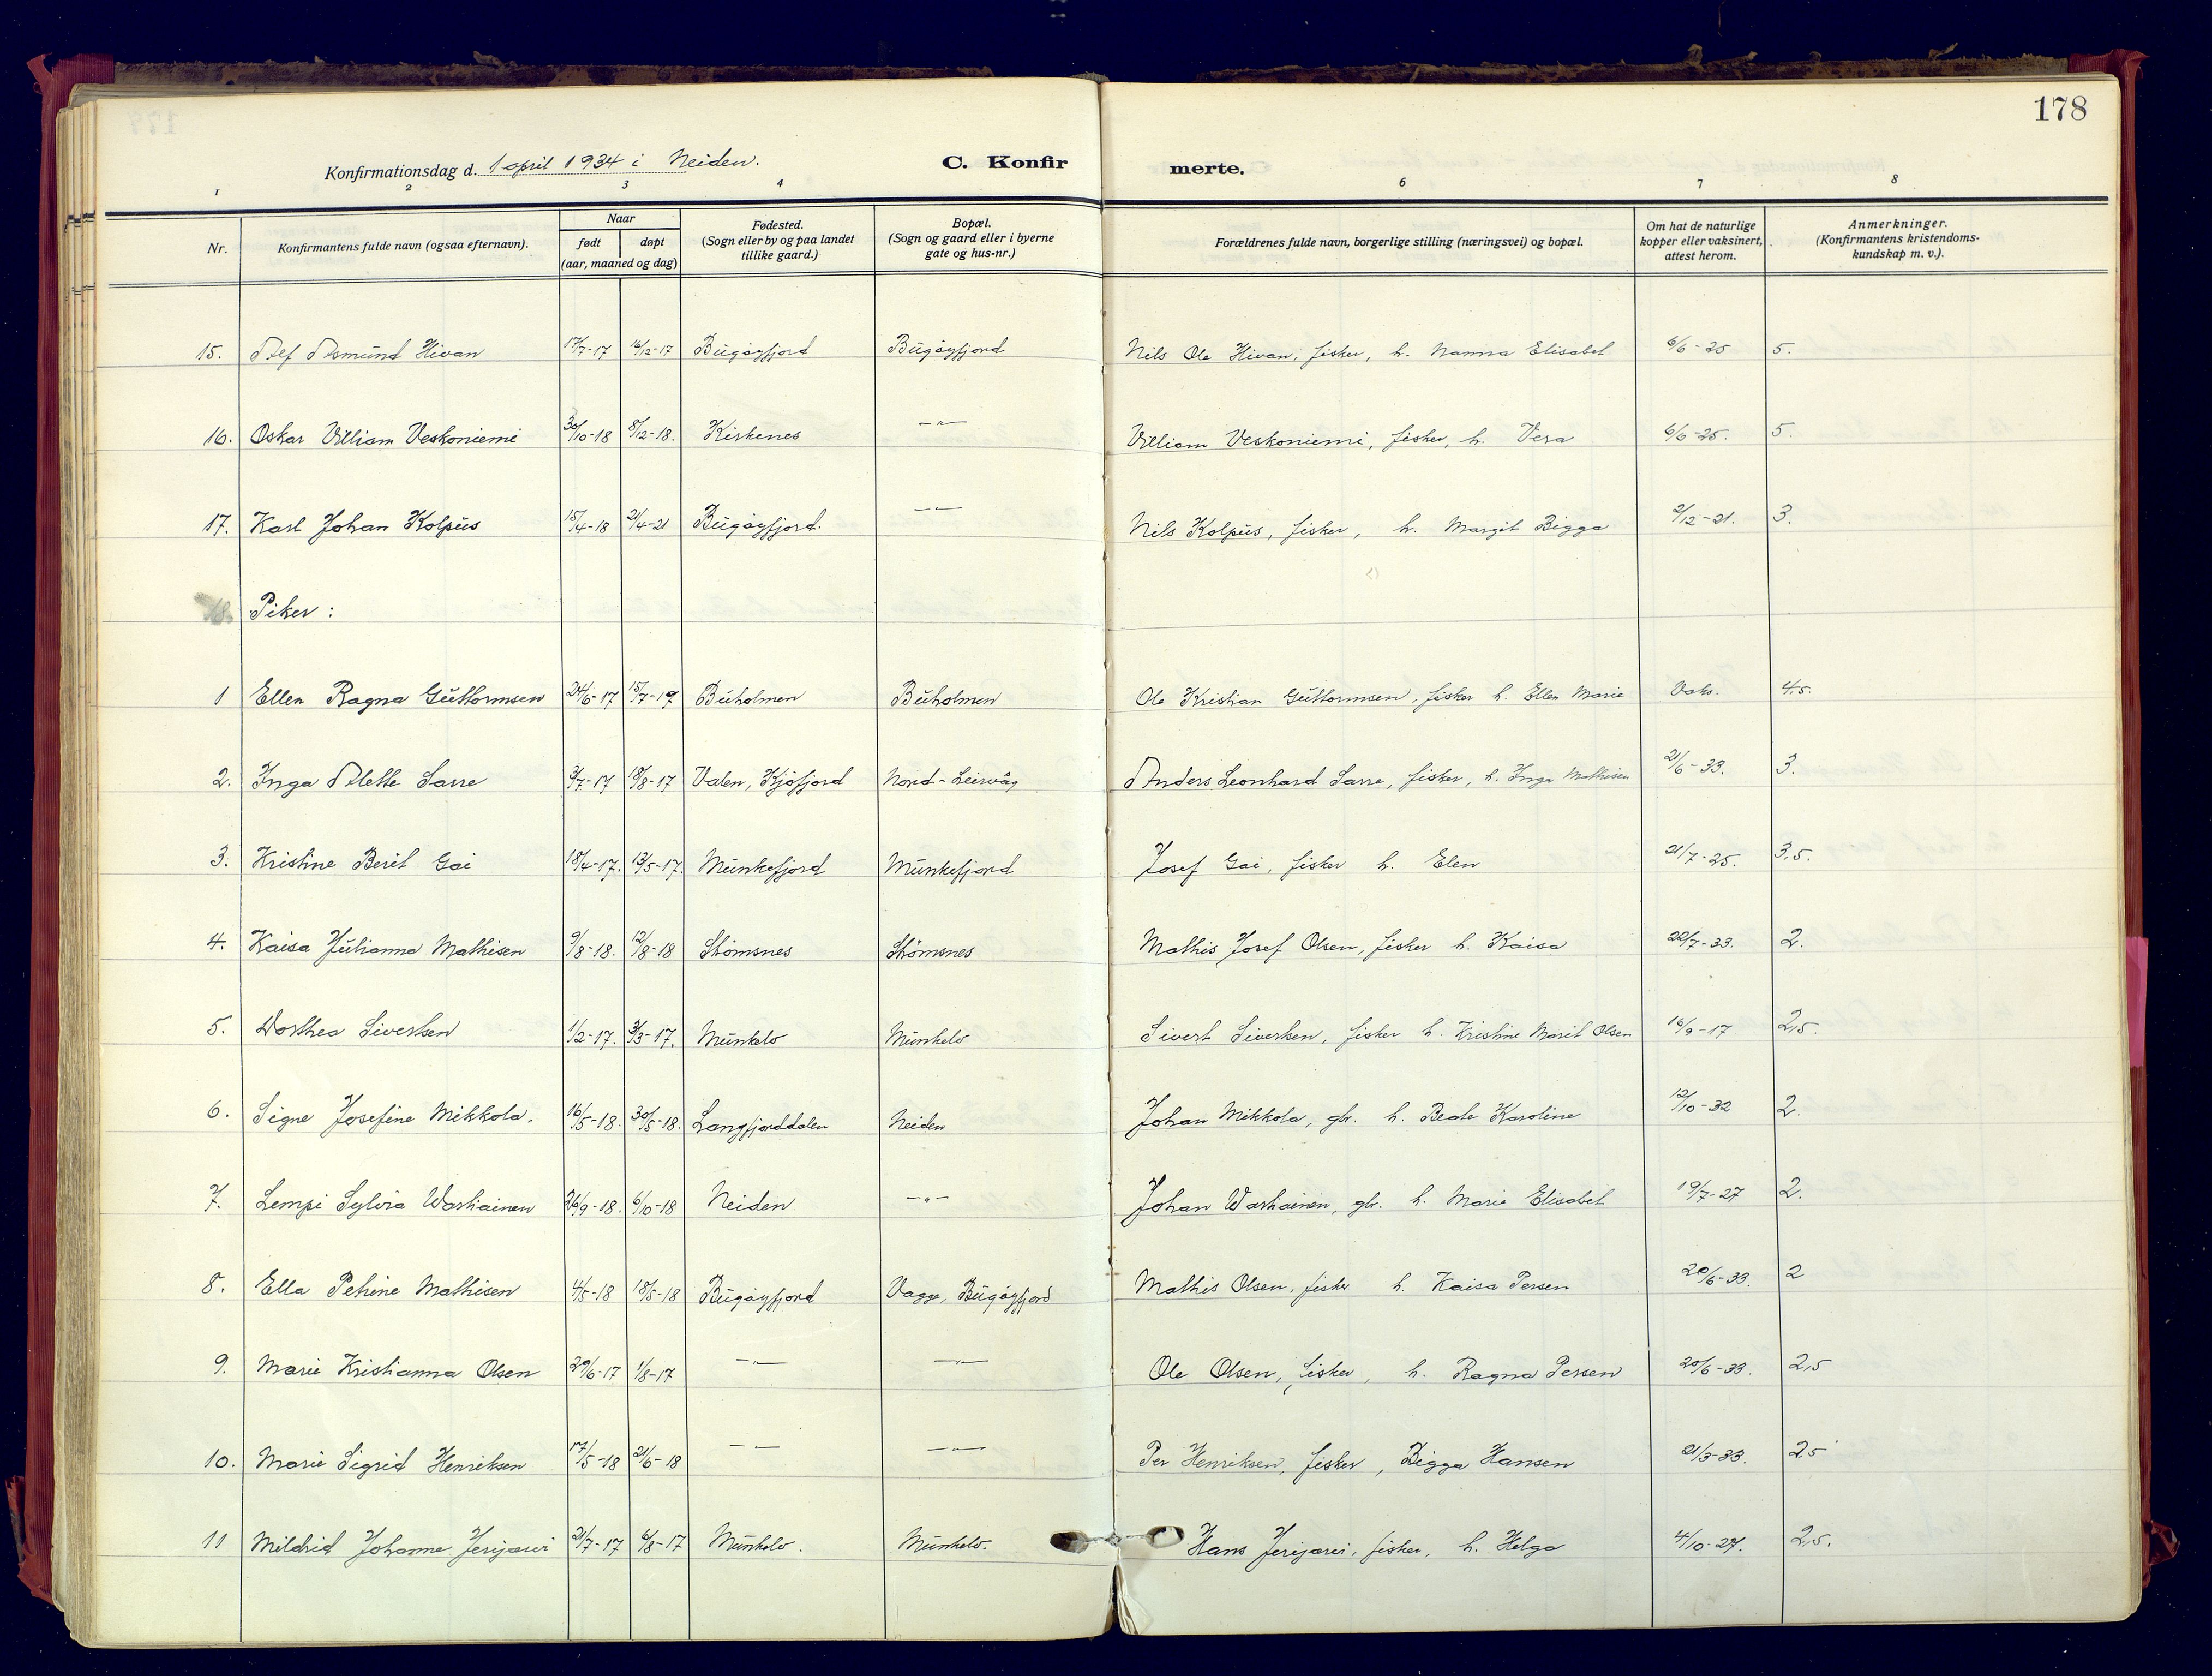 178
Konfirmationsdag d. 1 april 1934 i Neiden.
C. Konfirmerte.
1 2 3 4 6 7 8
Nr. Konfirmantens fulde navn (ogsaa efternavn). Naar født døpt (aar, maaned og dag) Fødested. (Sogn eller by og paa landet tillike gaard.) Bopæl. (Sogn og gaard eller i byerne gate og hus-nr.) Forældrenes fulde navn, borgerlige stilling (næringsvei) og bopæl. Om hat de naturlige kopper eller vaksinert, attest herom. Anmerkninger. (Konfirmantens kristendoms-kundskap m. v.).
15. Alf Asmund Hivan 17/7-17 16/12-17 Bugøyfjord Bugøyfjord Nils Ole Hivan, fisker, h. Nanna Elisabet 6/6-25 5.
16. Oskar Villiam Veskoniemi 30/10-18 8/12-18. Kirkenes -"- Villiam Veskoniemi, fisker, h. Vera 6/6-25. 5.
17. Karl Johan Kolpus 15/4-18 21/4-21 Bugøyfjord. -"- Nils Kolpus, fisker, h. Margit Bigga 2/12-21. 3.
18. Piker:
1 Ellen Ragna Guttormsen 24/6-17 15/7-17 Buholmen Buholmen Ole Kristian Guttormsen, fisker h. Ellen Marie Vaks. 4,5.
2. Inga Alette Sarre 3/7-17 18/8-17 Valen, Kjøfjord Nord-Leirvåg Anders Leonhard Sarre, fisker, h. Inga Mathisen 21/6-33. 3.
3. Kristine Berit Gai 18/4-17. 13/5-17. Munkefjord Munkefjord Josef Gai, fisker h. Elen 21/7-25. 3,5.
4. Kaisa Julianna Mathisen 9/8-18. 12/8-18 Strømsnes Strømsnes Mathis Josef Olsen, fisker h. Kaisa 22/7-33. 2.
5. Dorthea Sivertsen 1/2-17. 3/3-17. Munkelv Munkelv Sivert Sivertsen, fisker h. Kristine Marit Olsen 16/9-17 2,5.
6. Signe Josefine Mikkola. 16/5-18. 30/5-18. Langfjorddalen Neiden Johan Mikkola, gbr. h. Beate Karoline 12/10-32 2.
7. Lempi Sylvia Warhainen 26/9-18. 6/10-18 Neiden -"- Johan Warhainen, gbr. h. Marie Elisabet 19/7-27 2.
8. Ella Petrine Mathisen 4/5-18 18/5-18 Bugøyfjord Vagge, Bugøyfjord Mathis Olsen, fisker h. Kaisa Persen 20/6-33. 2
9. Marie Kristianna Olsen 29/6-17 1/8-17 -"- -"- Ole Olsen, fisker, h. Ragna Persen 20/6-33. 2,5
10. Marie Sigrid Henriksen 17/5-18 21/6-18 -"- -"- Per Henriksen, fisker, Bigga Hansen 21/3-33. 2,5
11 Mildrid Johanne Jerijærvi 21/7-17 6/8-17 Munkelv. Munkelv. Hans Jerijærvi, fisker, h. Helga 4/10-27. 2,5.